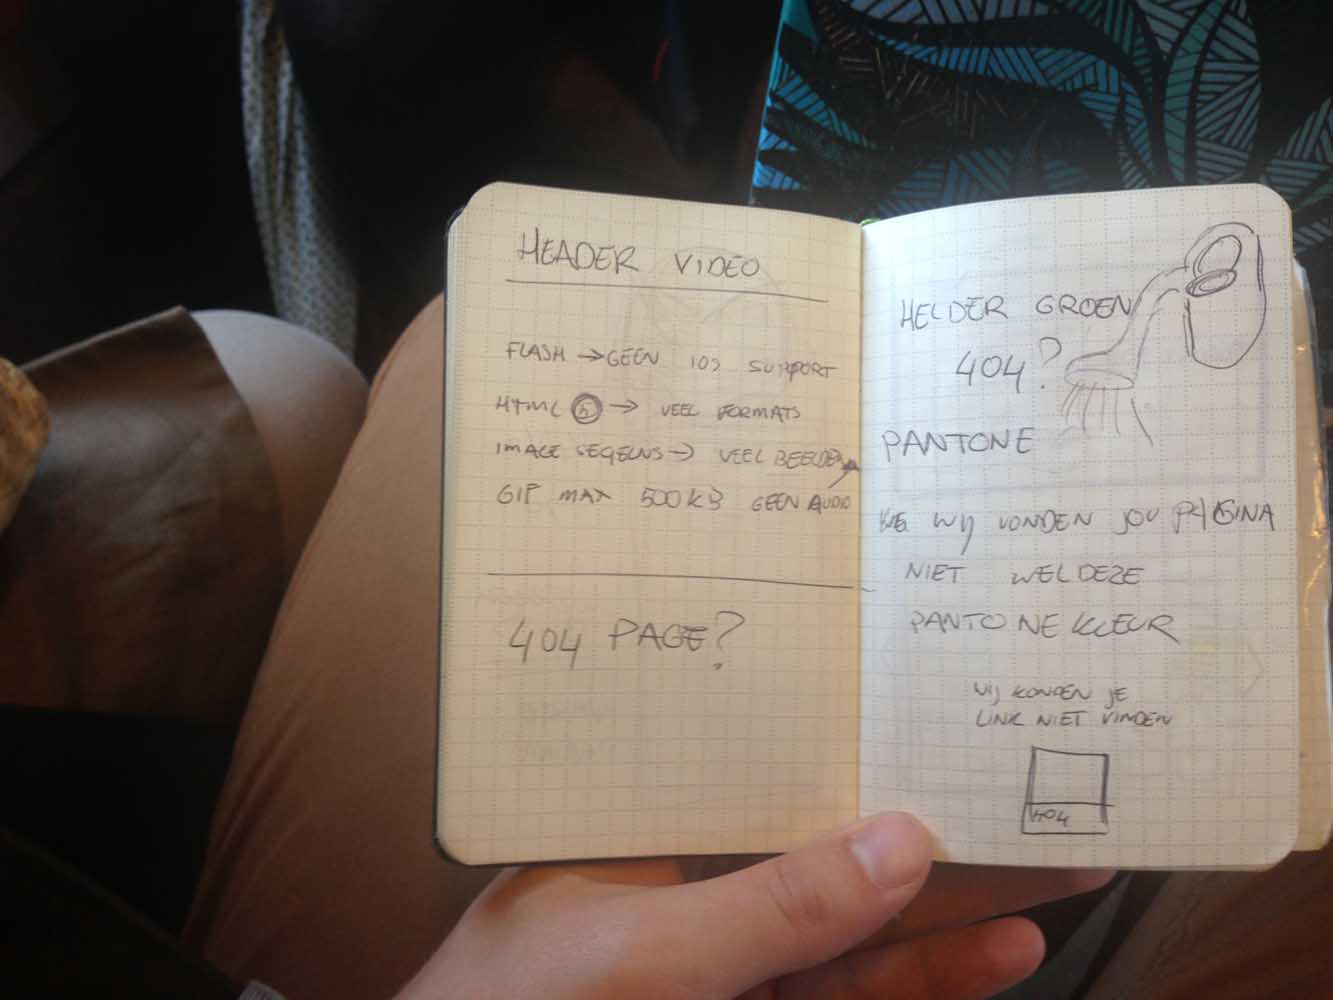 HEADER VIDEO
FLASH → GEEN IOS SUPPORT
HTML 5 → VEEL FORMATS
IMAGE SEQEUNS → VEEL BEELDEN
GIF MAX 500KB GEEN AUDIO
404 PAGE?
HELDER GROEN
404?
PANTONE
WIJ VONDEN JOU PAGINA
NIET WEL DEZE
PANTONE KLEUR
WIJ KONDEN JE
LINK NIET VINDEN
404